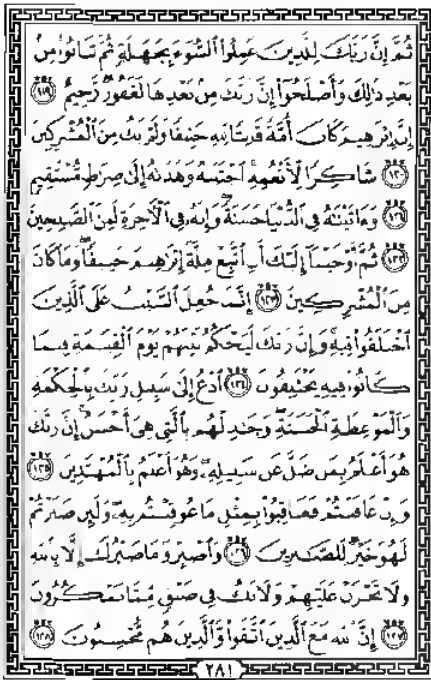 ثُمَّ إِنَّ رَبَّكَ لِلَّذِينَ عَمِلُوا۟ ٱلسُّوٓءَ بِجَهَـٰلَةٍ ثُمَّ تَابُوا۟ مِنۢ
بَعْدِ ذَٰلِكَ وَأَصْلَحُوٓا۟ إِنَّ رَبَّكَ مِنۢ بَعْدِهَا لَغَفُورٌ رَّحِيمٌ ﴿١١٩﴾
إِنَّ إِبْرَٰهِيمَ كَانَ أُمَّةً قَانِتًا لِّلَّهِ حَنِيفًا وَلَمْ يَكُ مِنَ ٱلْمُشْرِكِينَ
﴿١٢٠﴾ شَاكِرًا لِّأَنْعُمِهِ ۚ ٱجْتَبَىٰهُ وَهَدَىٰهُ إِلَىٰ صِرَٰطٍ مُّسْتَقِيمٍ
﴿١٢١﴾ وَءَاتَيْنَـٰهُ فِى ٱلدُّنْيَا حَسَنَةً ۖ وَإِنَّهُۥ فِى ٱلْـَٔاخِرَةِ لَمِنَ ٱلصَّـٰلِحِينَ
﴿١٢٢﴾ ثُمَّ أَوْحَيْنَآ إِلَيْكَ أَنِ ٱتَّبِعْ مِلَّةَ إِبْرَٰهِيمَ حَنِيفًا ۖ وَمَا كَانَ
مِنَ ٱلْمُشْرِكِينَ ﴿١٢٣﴾ إِنَّمَا جُعِلَ ٱلسَّبْتُ عَلَى ٱلَّذِينَ
ٱخْتَلَفُوا۟ فِيهِ ۚ وَإِنَّ رَبَّكَ لَيَحْكُمُ بَيْنَهُمْ يَوْمَ ٱلْقِيَـٰمَةِ فِيمَا
كَانُوا۟ فِيهِ يَخْتَلِفُونَ ﴿١٢٤﴾ ٱدْعُ إِلَىٰ سَبِيلِ رَبِّكَ بِٱلْحِكْمَةِ
وَٱلْمَوْعِظَةِ ٱلْحَسَنَةِ ۖ وَجَـٰدِلْهُم بِٱلَّتِى هِىَ أَحْسَنُ ۚ إِنَّ رَبَّكَ
هُوَ أَعْلَمُ بِمَن ضَلَّ عَن سَبِيلِهِۦ ۖ وَهُوَ أَعْلَمُ بِٱلْمُهْتَدِينَ ﴿١٢٥﴾
وَإِنْ عَاقَبْتُمْ فَعَاقِبُوا۟ بِمِثْلِ مَا عُوقِبْتُم بِهِۦ ۖ وَلَئِن صَبَرْتُمْ
لَهُوَ خَيْرٌ لِّلصَّـٰبِرِينَ ﴿١٢٦﴾ وَٱصْبِرْ وَمَا صَبْرُكَ إِلَّا بِٱللَّهِ ۚ
وَلَا تَحْزَنْ عَلَيْهِمْ وَلَا تَكُ فِى ضَيْقٍ مِّمَّا يَمْكُرُونَ
﴿١٢٧﴾ إِنَّ ٱللَّهَ مَعَ ٱلَّذِينَ ٱتَّقَوا۟ وَّٱلَّذِينَ هُم مُّحْسِنُونَ ﴿١٢٨﴾
٢٨١